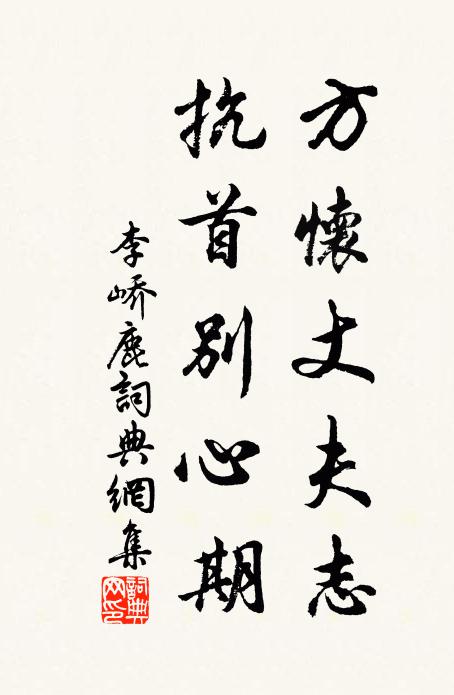 方懷丈夫志
抗首別心期
李嶠鹿詞典網集
詞典網印